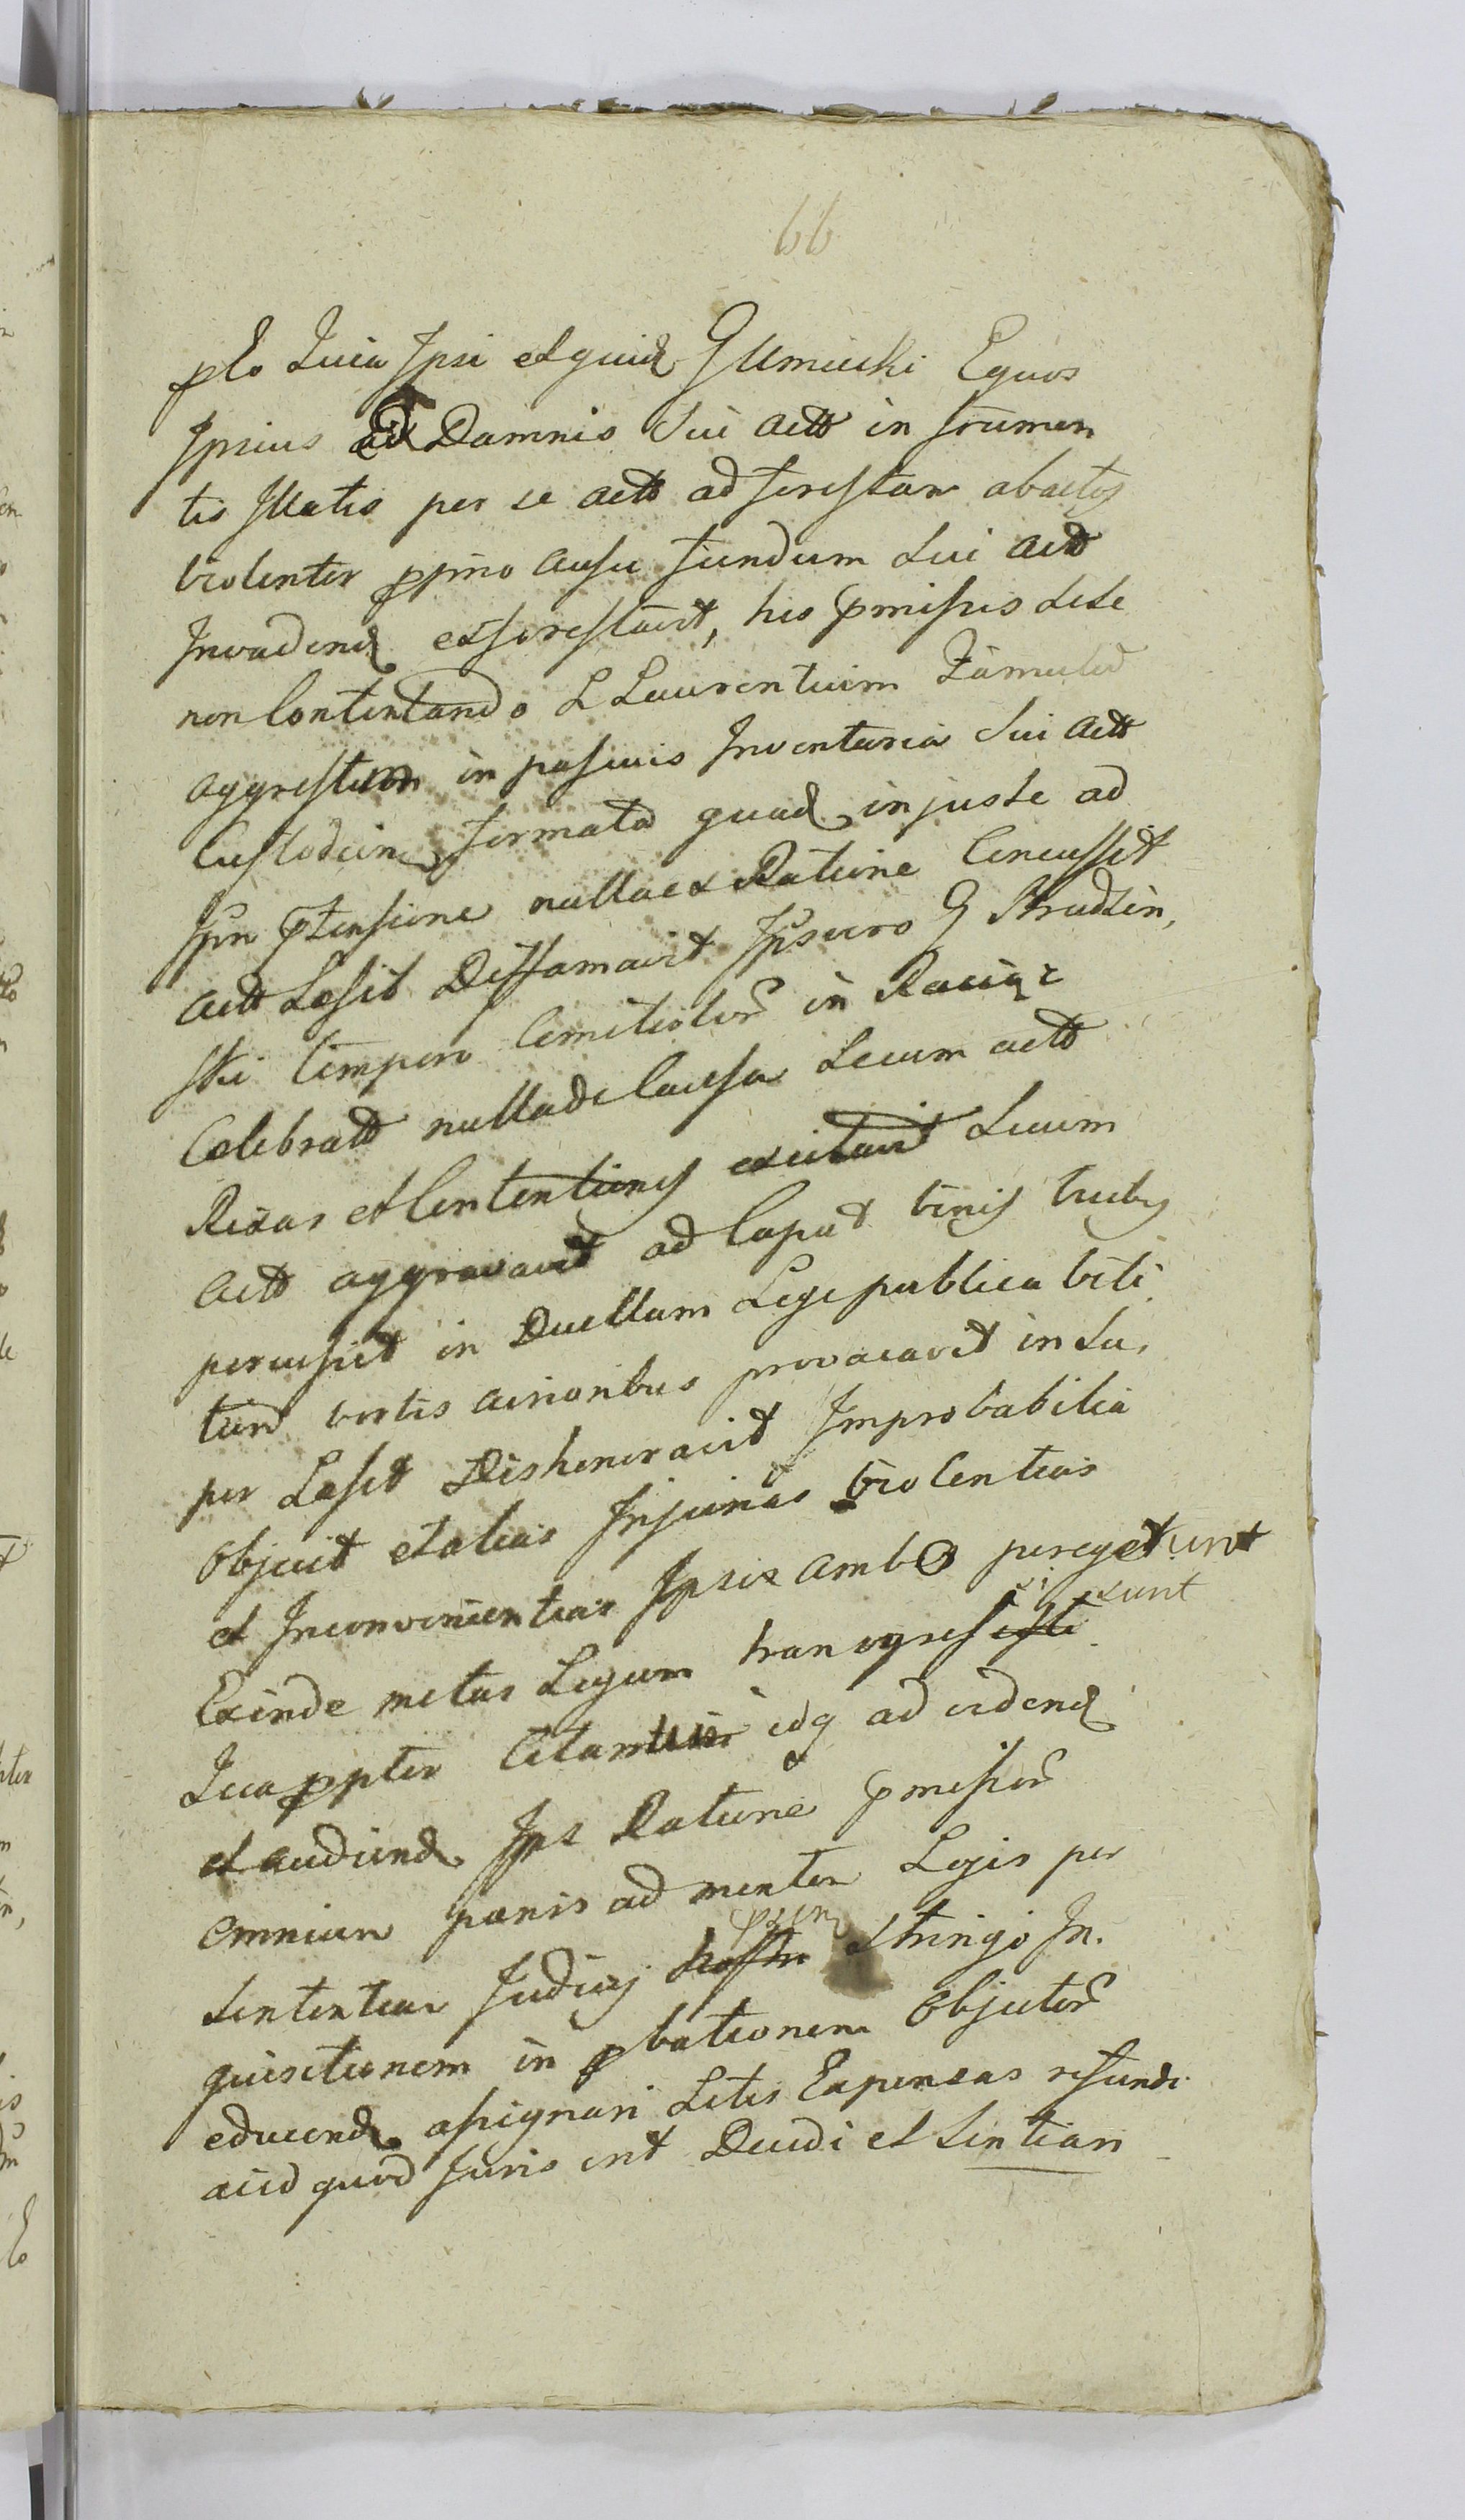 66
plo Quia Ipsi et quid G Umiecki Equos
Ipsius ad Damnis Sui actt in frumen
tis Illatis per se actt ad forestam abactos
violenter ppmo ausu fundum Sui actt
Invadend exforestavit, his pmissis sese
non Contentando L Laurentium Famulum
aggrestum in pascuis Inventaria Sui actt
Custodien, formata quad injuste ad
Ipm ptensione nulla ex Ratione Concussit
actt Lesit Diffamavit Ipse vero G
ski tempore Comitiolor in
Celebratt nulla de Causa Secum actt
Rixas et Contentiones excitavit Secum
actt aggravavit ad Caput binis
percussit in Duellum Lege publica veti
tum verbis provocavit in Su,
per Lesit Dishonoravit Improbabilia
objecit et alias Injurias violentias
et Inconvenientias Ipsis ambo peregerunt
Exinde metas Legum transgressi sunt
Quapppter Citantur idq ad vidend
et audiend Ips Ratione pmissor
omnium panis ad mentem Legis per
Sententiam Judicij psen stringi In.
quisitionem in pbationem objector
educend assignari Litis Expensas refundi
aiid quod Juris erit Decidi et Sentiari